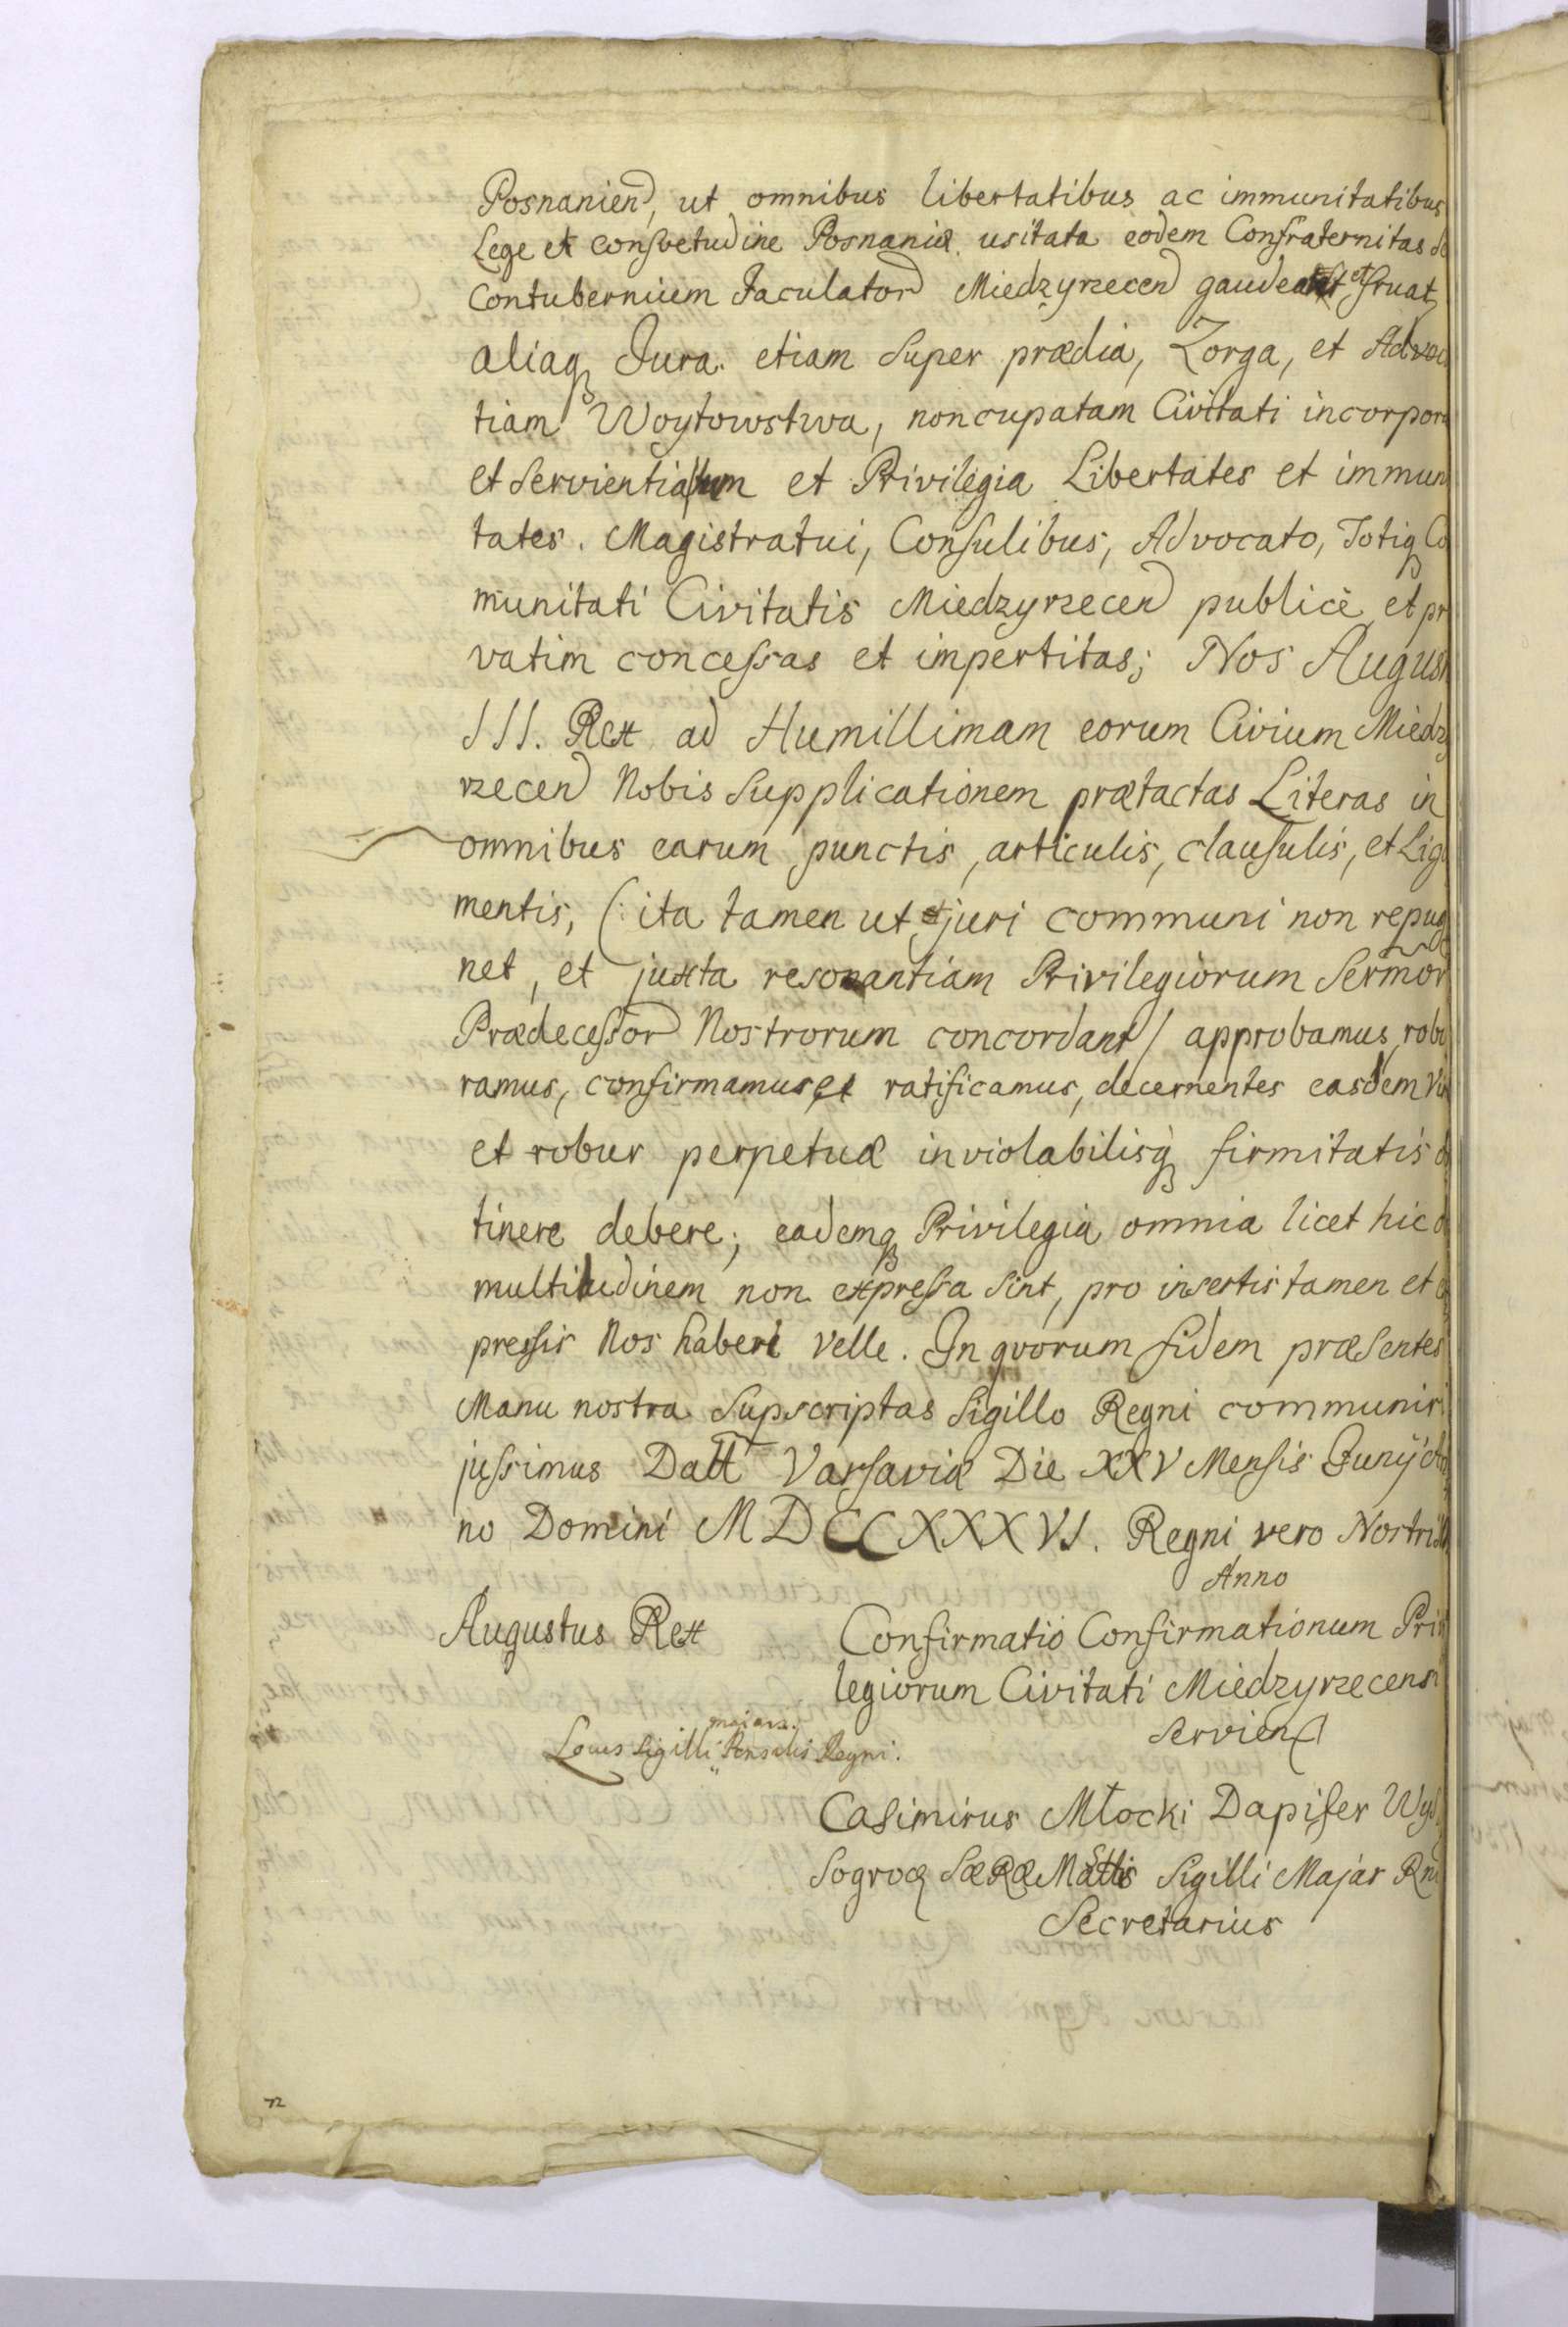 Posnanien, ut omnibus libertatibus ac immunitatibus
Lege et consvetudine Posnaniæ usitata eodem Confraternitas
Contubernium Jaculator Miedzyrzecen gaudeat et fruat
aliaq Jura etiam super prædia, Zorga, et Advoc
tiam Woytowstwa, noncupatam Civitati incorpor
et servientia tum et Privilegia Libertates et immun
tates. Magistratui, Consulibus, Advocato, Totiq Co
munitati Civitatis Miedzyrzecen publicè et pr
vatim concessas et impertitas; Nos August
III. Rex ad Humillimam eorum Civium Miedzy
rzecen Nobis supplicationem prætactas Literas in
omnibus earum punctis, articulis, clausulis, et Liga
mentis, (: ita tamen ut juri communi non repug
net, et juxta resonantiam Privilegiorum Sermor
Prædecessor Nostrorum concordant / approbamus, robo
ramus, confirmamus et ratificamus, decernentes easdem Vim
et robur perpetuæ inviolabilisq firmitatis o
tinere debere; eademq Privilegia omnia licet hic o
multitudinem non expressa sint, pro insertis tamen et e
pressis Nos haberi velle. In qvorum fidem præsentes
Manu nostra supscriptas Sigillo Regni communiri
jussimus Datt Varsaviæ Die XXV Mensis Junÿ An
no Domini MDCCXXXVI. Regni vero Nostri III
Anno
Augustus Rex
Confirmatio Confirmationum Privi
legiorum Civitati Miedzyrzecensi
Servien
majoris.
Locus Sigilli Pensilis Regni.
Casimirus Młocki Dapifer Wys
sogrod SæRæMattis Sigilli Major Rni
Secretarius